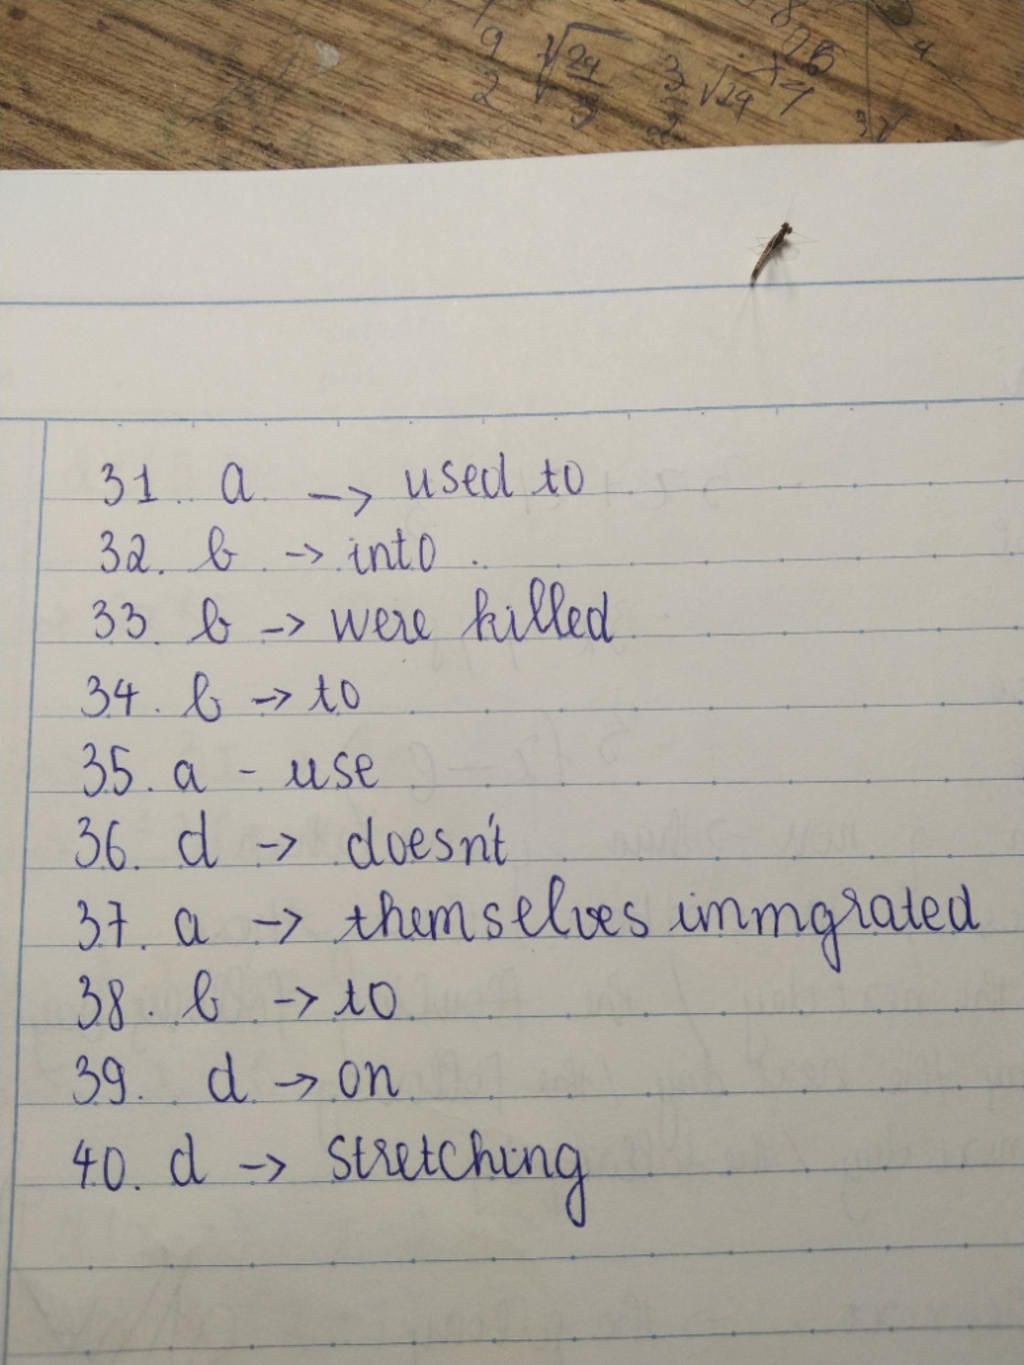 31. a. -> used to
32. b -> into.
33. b -> were killed
34. b -> to
35. a - use
36. d -> doesn't
37. a -> themselves immgrated
38. b -> to
39. d -> on
40. d -> stretching